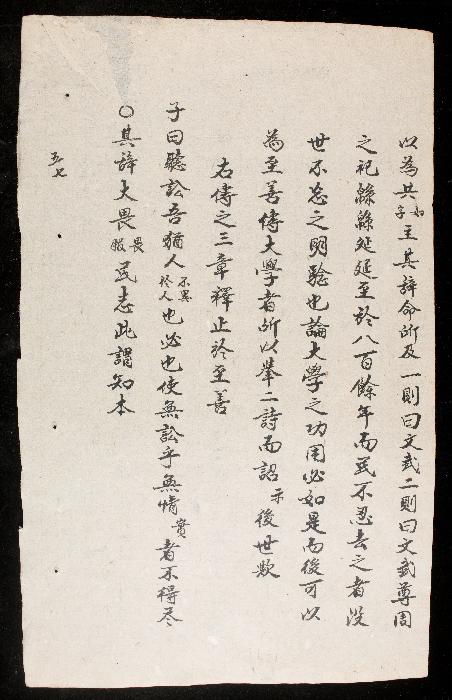 以為共子如主其辞命所及一則曰文武二則曰文武尊周
之祀緜緜延延至於八百餘年而民不忍去之者没
世不忘之明驗也論大學之功用必如是而後可以
為至善傳大學者所以舉二詩而詔示後世歟
右傳之三章釋止於至善
子曰聽訟吾猶人不異於人也必也使無訟乎無情實者不得尽
○其辞大畏畏服民志此謂知本
五七